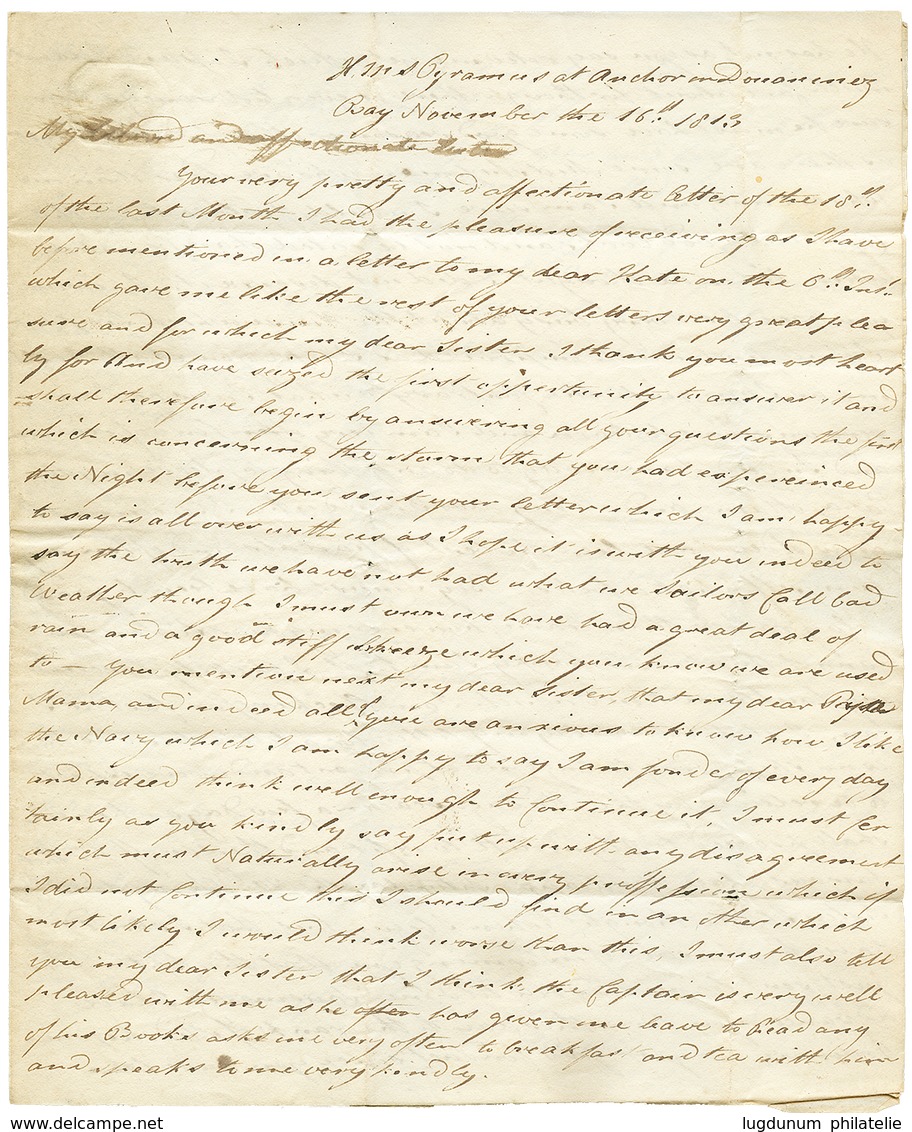 H.M.S Pyramus at Anchor in Douaninez
Bay November the 16th 1813
My beloved and affectionate Sister
Your very pretty and affectionate letter of the 18th
of the last Month I had the pleasure of receiving as I have
before mentioned in a letter to my dear Kate on the 6th Inst
which gave me like the rest of your letters very great plea
sure and for which my dear Sister I thank you most heart
ly for And have seized the first oppertunity to answer it and
shall therefore begin by answering all your questions the first
which is concerning the storm that you had experinced
the Night before you sent your letter which I am happy
to say is all over with us as I hope it is with you indeed to
say the truth we have not had what we Sailors Call bad
Weather though I must own we have had a great deal of
rain and a good stiff breeze which you know we are used
to — You mention next my dear Sister, that my dear
Mama, and indeed all of you are anxious to know how I like
the Navy which I am happy to say I am fonder of every day
and indeed think well enough to Continue it, I must Cer
tainly as you kindly say put up with any disagreement
which must Naturally arise in every proffession which if
I did not Continue this I should find in an other which
most likely I would think worse than this, I must also tell
you my dear Sister that I think the Captain is very well
pleased with me as he often has given me leave to Read any
of his Books asks me very often to breakfast and tea with him
and speaks to me very kindly.
delcampe.net
lugdunum philatelie